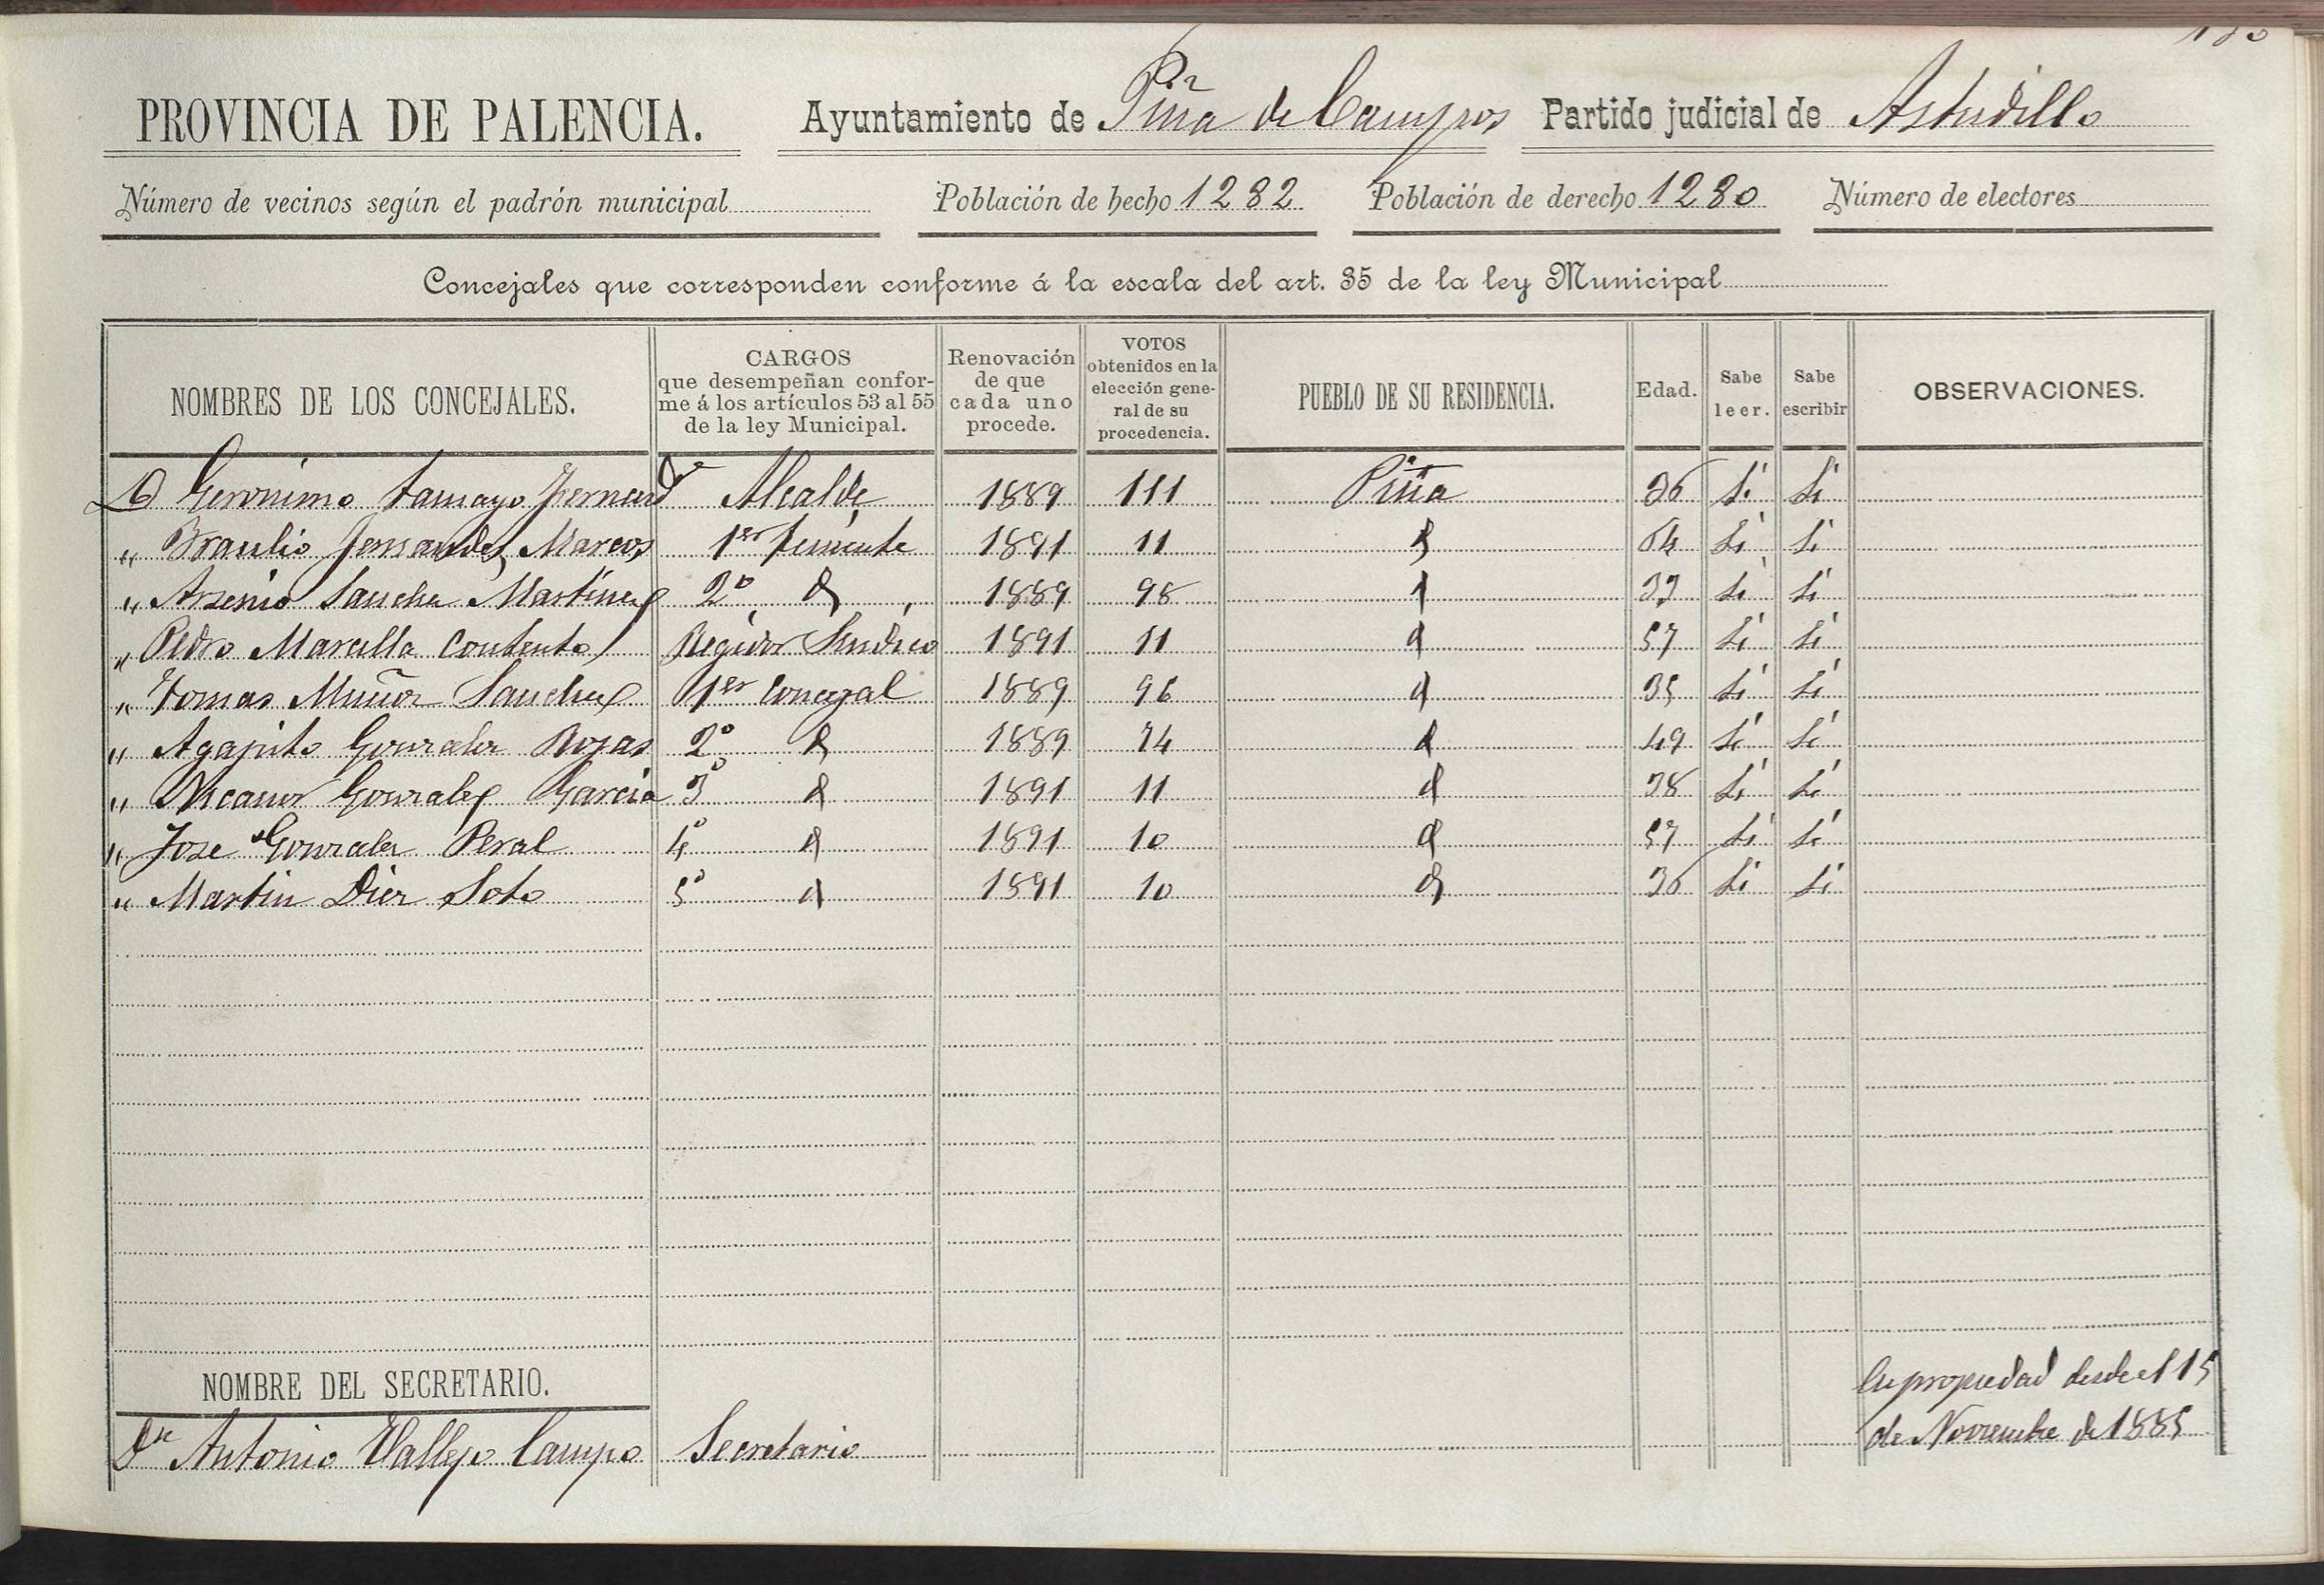 PROVINCIA DE PALENCIA. Ayuntamiento de Piña de Campos Partido judicial de Astudillo
Número de vecinos según el padrón municipal Población de hecho 1282 Población de derecho 1280 Número de electores
Concejales que corresponden conforme á la escala del art. 35 de la ley Municipal
NOMBRES DE LOS CONCEJALES.
CARGOS
que desempeñan confor-
me á los artículos 53 al 55
de la ley Municipal.
Renovación
de que
cada uno
procede.
VOTOS
obtenidos en la
elección gene-
ral de su
procedencia.
PUEBLO DE SU RESIDENCIA.
Edad.
Sabe
leer.
Sabe
escribir
OBSERVACIONES.
D Geronimo Tamayo Fernand Alcalde 1889 111 Piña 36 Si Si
" Braulio Fernandez Marcos 1er Teniente 1891 11 d 54 Si Si
" Arsenio Sanchez Martinez 2º d 1889 98 d 33 Si Si
" Pedro Marcilla Contento Regidor Sindico 1891 11 d 57 Si Si
" Tomas Muñoz Sanchez 1er Concejal 1889 96 d 35 Si Si
" Agapito Gonzalez Rojas 2º d 1889 74 d 49 Si Si
" Nicanor Gonzalez Garcia 3º d 1891 11 d 38 Si Si
" Jose Gonzalez Peral 4º d 1891 10 d 57 Si Si
" Martin Diez Soto 5º d 1891 10 d 36 Si Si
NOMBRE DEL SECRETARIO.
En propiedad desde el 15
de Noviembre de 1885
Dn Antonio Vallejo Campo Secretario